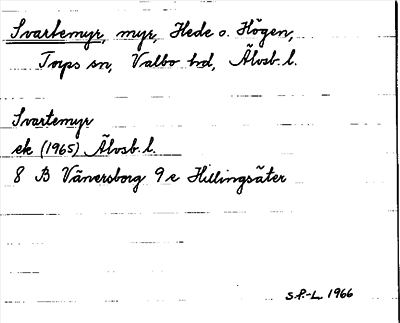 Svartemyr, myr, Hede o. Högen,
Torps sn, Valbo hd, Älvsb. l.
Svartemyr
ek (1965) Älvsb l.
8 B Vänersborg 9 e Hillingsäter
S.P.-L. 1966